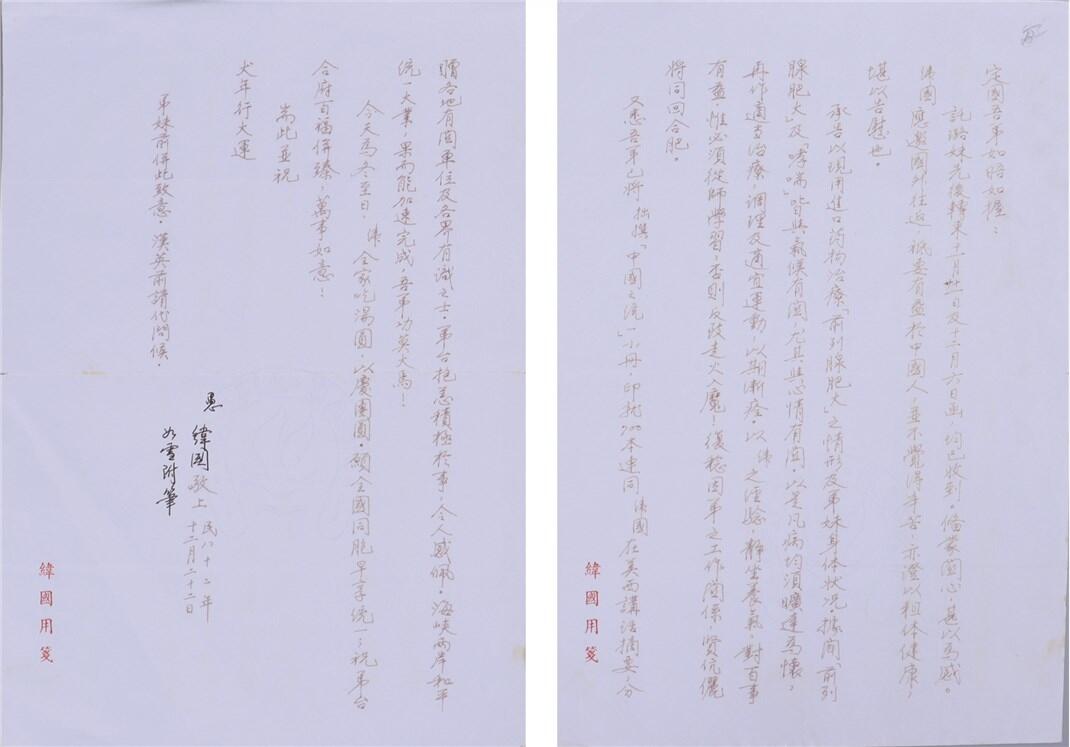 定國吾弟如晤如握：
託潞妹先後轉來十一月卅日及十二月六日函，均已收到。備蒙關心，甚以為感。
緯國應邀國外往返，祇要有益於中國人，並不覺得辛苦，亦證以粗体健康，
堪以告慰也。
承告以現用進口药物治療「前列腺肥大」之情形及弟妹身体狀況，據聞「前列
腺肥大」及「哮喘」皆與氣候有関，尤其與心情有関，以是凡病均須曠達為懷，
再作適當治療，調理及適宜運動，以期漸痊。以緯之經驗，靜坐養氣，對百事
有益，惟必須從師學習，否則反致走火入魔！復稔因弟之工作関係，賢伉儷
將同回合肥。
又悉吾弟已將拙撰「中國之統一」小冊，印就200本連同緯國在美西講話摘要，分
贈各地有関單位及各界有識之士。弟台抱恙積極於事，令人感佩。海峽兩岸和平
統一大業，果而能加速完成，吾弟功莫大焉！
今天為冬至日，緯全家吃湯圓，以慶團圓。願全國同胞早享統一；祝弟台
合府百福併臻，萬事如意！
耑此並祝
犬年行大運
弟妹前併此致意。漢英前請代問候。
愚 緯國敬上
如雪附筆
民八十二年
十二月二十二日
緯國用箋
緯國用箋